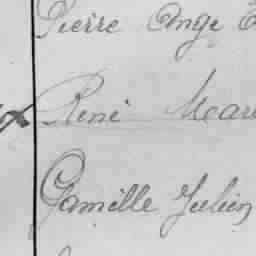 Pierre Ange
René
Camille Julien